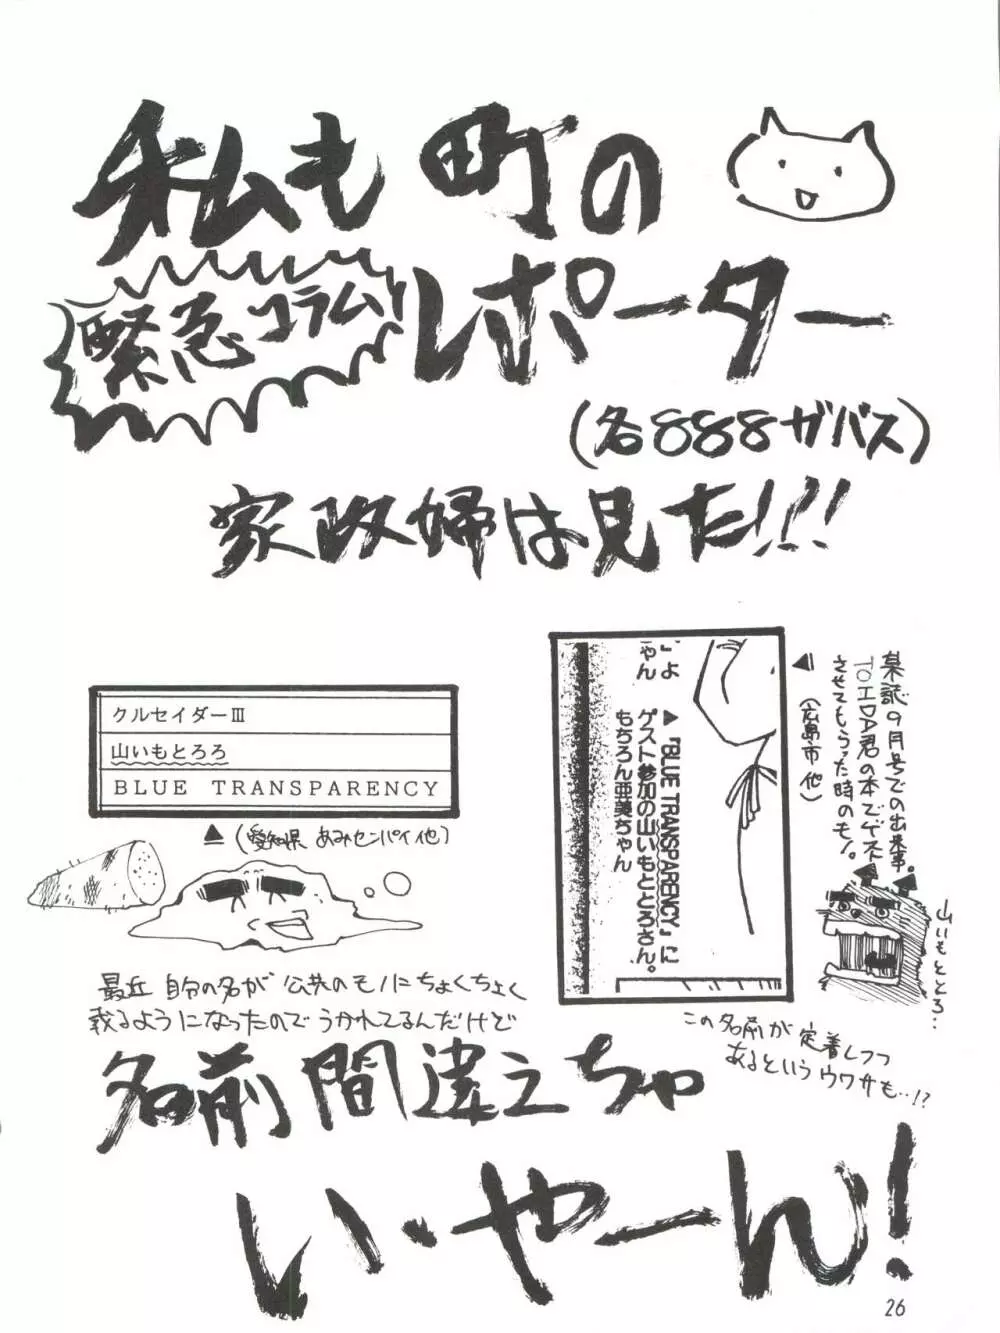 私も町の
緊急コラム
レポーター
(名888ガバス)
家政婦は見た!!!
クルセイダーⅢ
山いもとろろ
BLUE TRANSPARENCY
▲(愛知県 あみセンパイ他)
」よ
ゃん
▲『BLUE TRANSPARENCY』に
ゲスト参加の山いもととろさん。
もちろん亜美ちゃん
某誌9月号での出来事。
TOIDA君の本でゲスト
させてもらった時のモノ。
▲(広島市 他)
山いもととろ…
最近 自分の名が 公共のモノにちょくちょく
載るようになったので うかれてるんだけど
この名前が 定着しつつ
あるという ウワサも…!?
名前間違えちゃ
い・やーん!
26